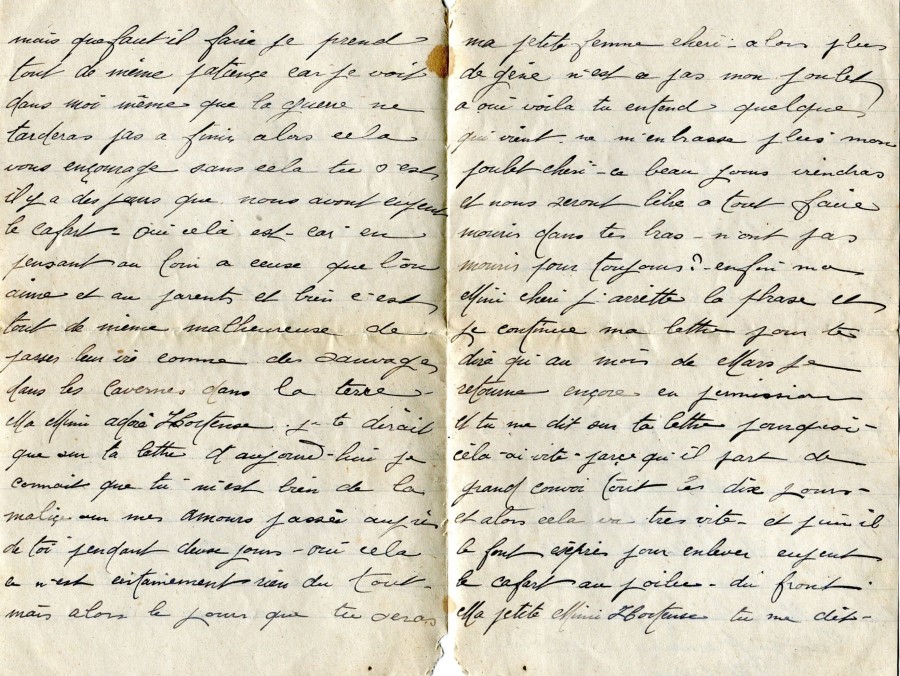 mais que faut il faire je prend
tout de même patience car je voit
dans moi même que la guerre ne
tarderas pas a finir alors cela
vous ençourage sans cela tu s'est
il y a des jours que nous avont
le cafart - oui celà est - car en
pensant au loin a ceuse que l'on
aime et au parents et bien c'est
tout de même malheureuse de
passer leur vie comme des sauvages
dans les cavernes dans la terre -
Ma Mimi adoré Hortense . je te dirait
que sur ta lettre d'aujourd-hui je
connait que tu m'est bien de la
malice sur mes amours passée auprès
de toi pendant deuse jours - oui cela
ce n'est certainement rien du tout -
mais alors le jour que tu seras
ma petite femme cheri - alors plus
de gêne n'est a pas mon poulet
a oui voila tu entend quelque
qui vient - ne m'enbrasse plus mon
poulet chéri - ce beau jours viendras
et nous seront libre a tout faire
mourir dans tes bras - n'ont pas
mourir pour toujours ? - enfin ma
Mimi cheri j'arrètte la phrase et
je continue ma lettre pour te
dire qui au mois de Mars je
retourne ençore en permission
et tu me dit sur ta lettre pourquoi -
cèla - ai vite - parçe qu'il part de
grand convoi tout ès dix jours -
et alors cela va tres vite - et puis il
le font exprès pour enlever
le cafart au poilu - du front .
Ma petite Mimi Hortense tu me dit -